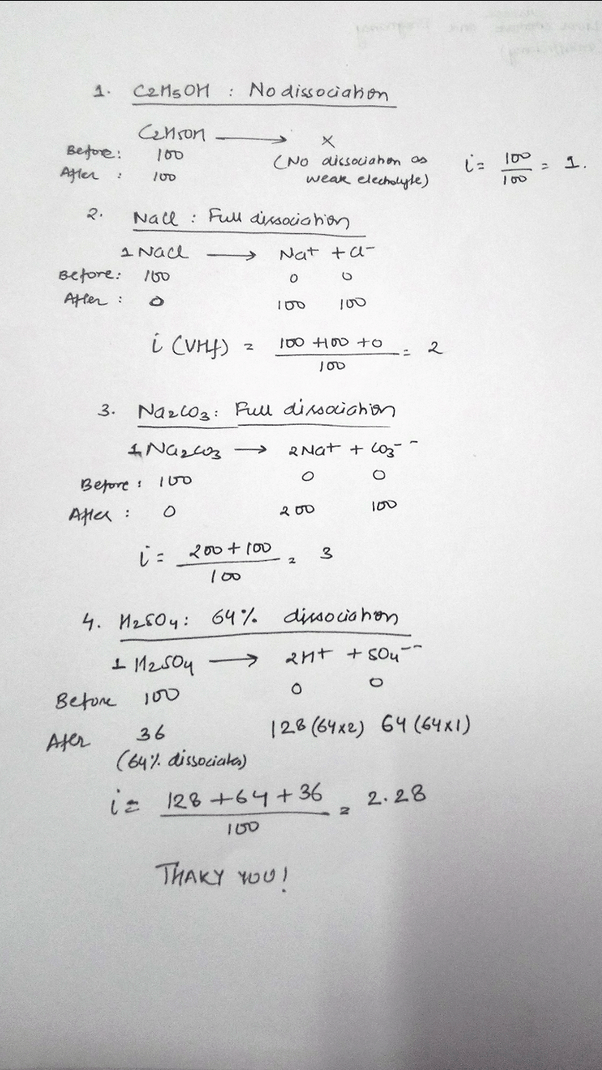 1. C2H5OH : No dissociation
C2H5OH ⟶ ×
Before: 100 (No dissociation as
After : 100 weak electrolyte) i = 100/100 = 1.
2. NaCl : Full dissociation
1 NaCl ⟶ Na+ + Cl-
Before: 100 0 0
After : 0 100 100
i (VHf) = 100 +100 +0/100 = 2
3. Na2CO3: Full dissociation
1 Na2CO3 ⟶ 2Na+ + CO3--
Before : 100 0 0
After : 0 200 100
i = 200 + 100/100 = 3
4. H2SO4: 64% dissociation
1 H2SO4 ⟶ 2H+ + SO4--
Before 100 0 0
After 36 128 (64x2) 64 (64x1)
(64% dissociates)
i = 128 + 64 + 36/100 = 2.28
THAKY YOU!